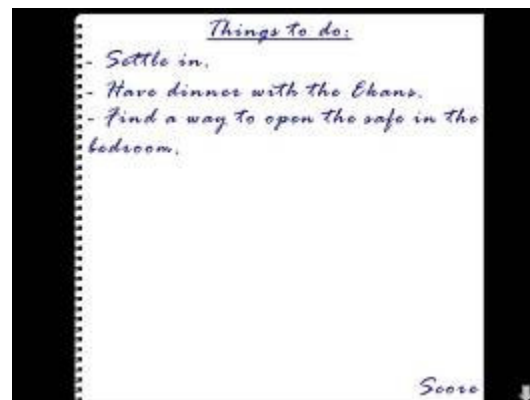 Things to do:
- Settle in.
- Have dinner with the Ekans.
- Find a way to open the safe in the
bedroom.
Score